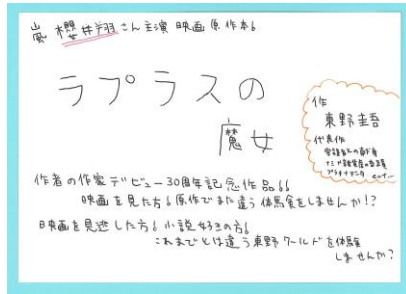 嵐 櫻井翔さん主演 映画原作本!
ラプラスの
魔女
作
東野圭吾
代表作
容疑者Xの献身
ナミヤ雑貨店の奇蹟
プラチナデータ
作者の作家デビュー30周年記念作品!!
映画を見た方!原作でまた違う体験をしませんか!?
映画を見逃した方!小説好きの方!
これまでとは違う東野ワールドを体験
しませんか?